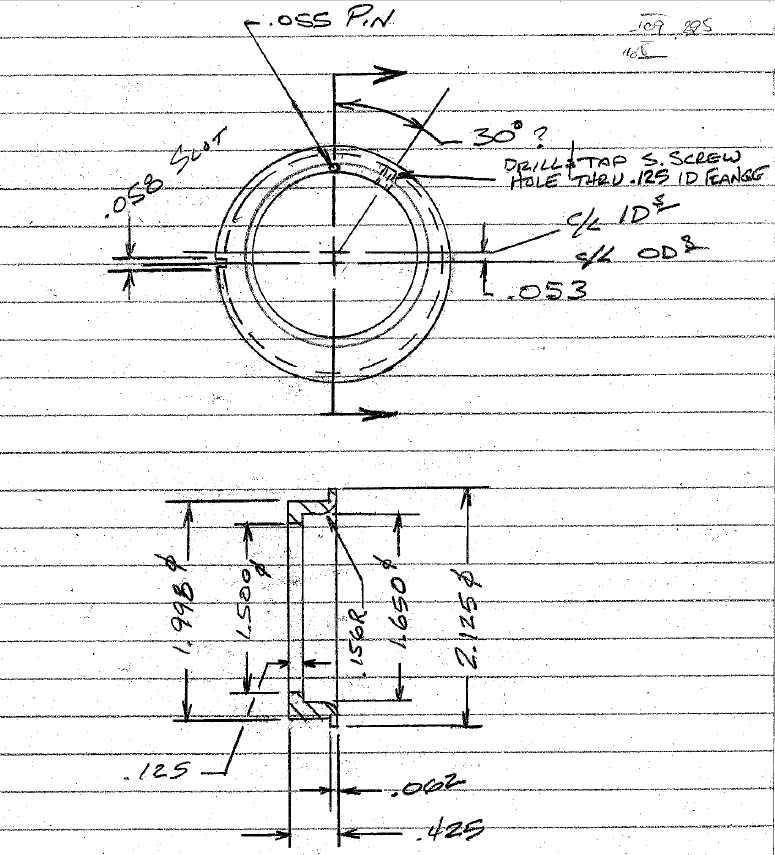 .055 PIN
.109 .225
30° ?
DRILL & TAP S. SCREW
HOLE THRU .125 ID FLANGE
.058 SLOT
C/L IDS
C/L ODS
.053
1.998 ϕ
1.500 ϕ
.156R
1.650 ϕ
2.125 ϕ
.125
.062
.425